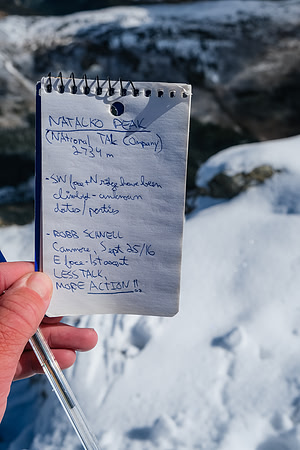 NATALKO PEAK
(National Talk Company)
2734 m
- SW face + N ridge have been
climbed - unknown
dates/parties
- ROBB SCHNELL
Canmore, Sept 25/16
E face - 1st ascent
LESS TALK,
MORE ACTION!!